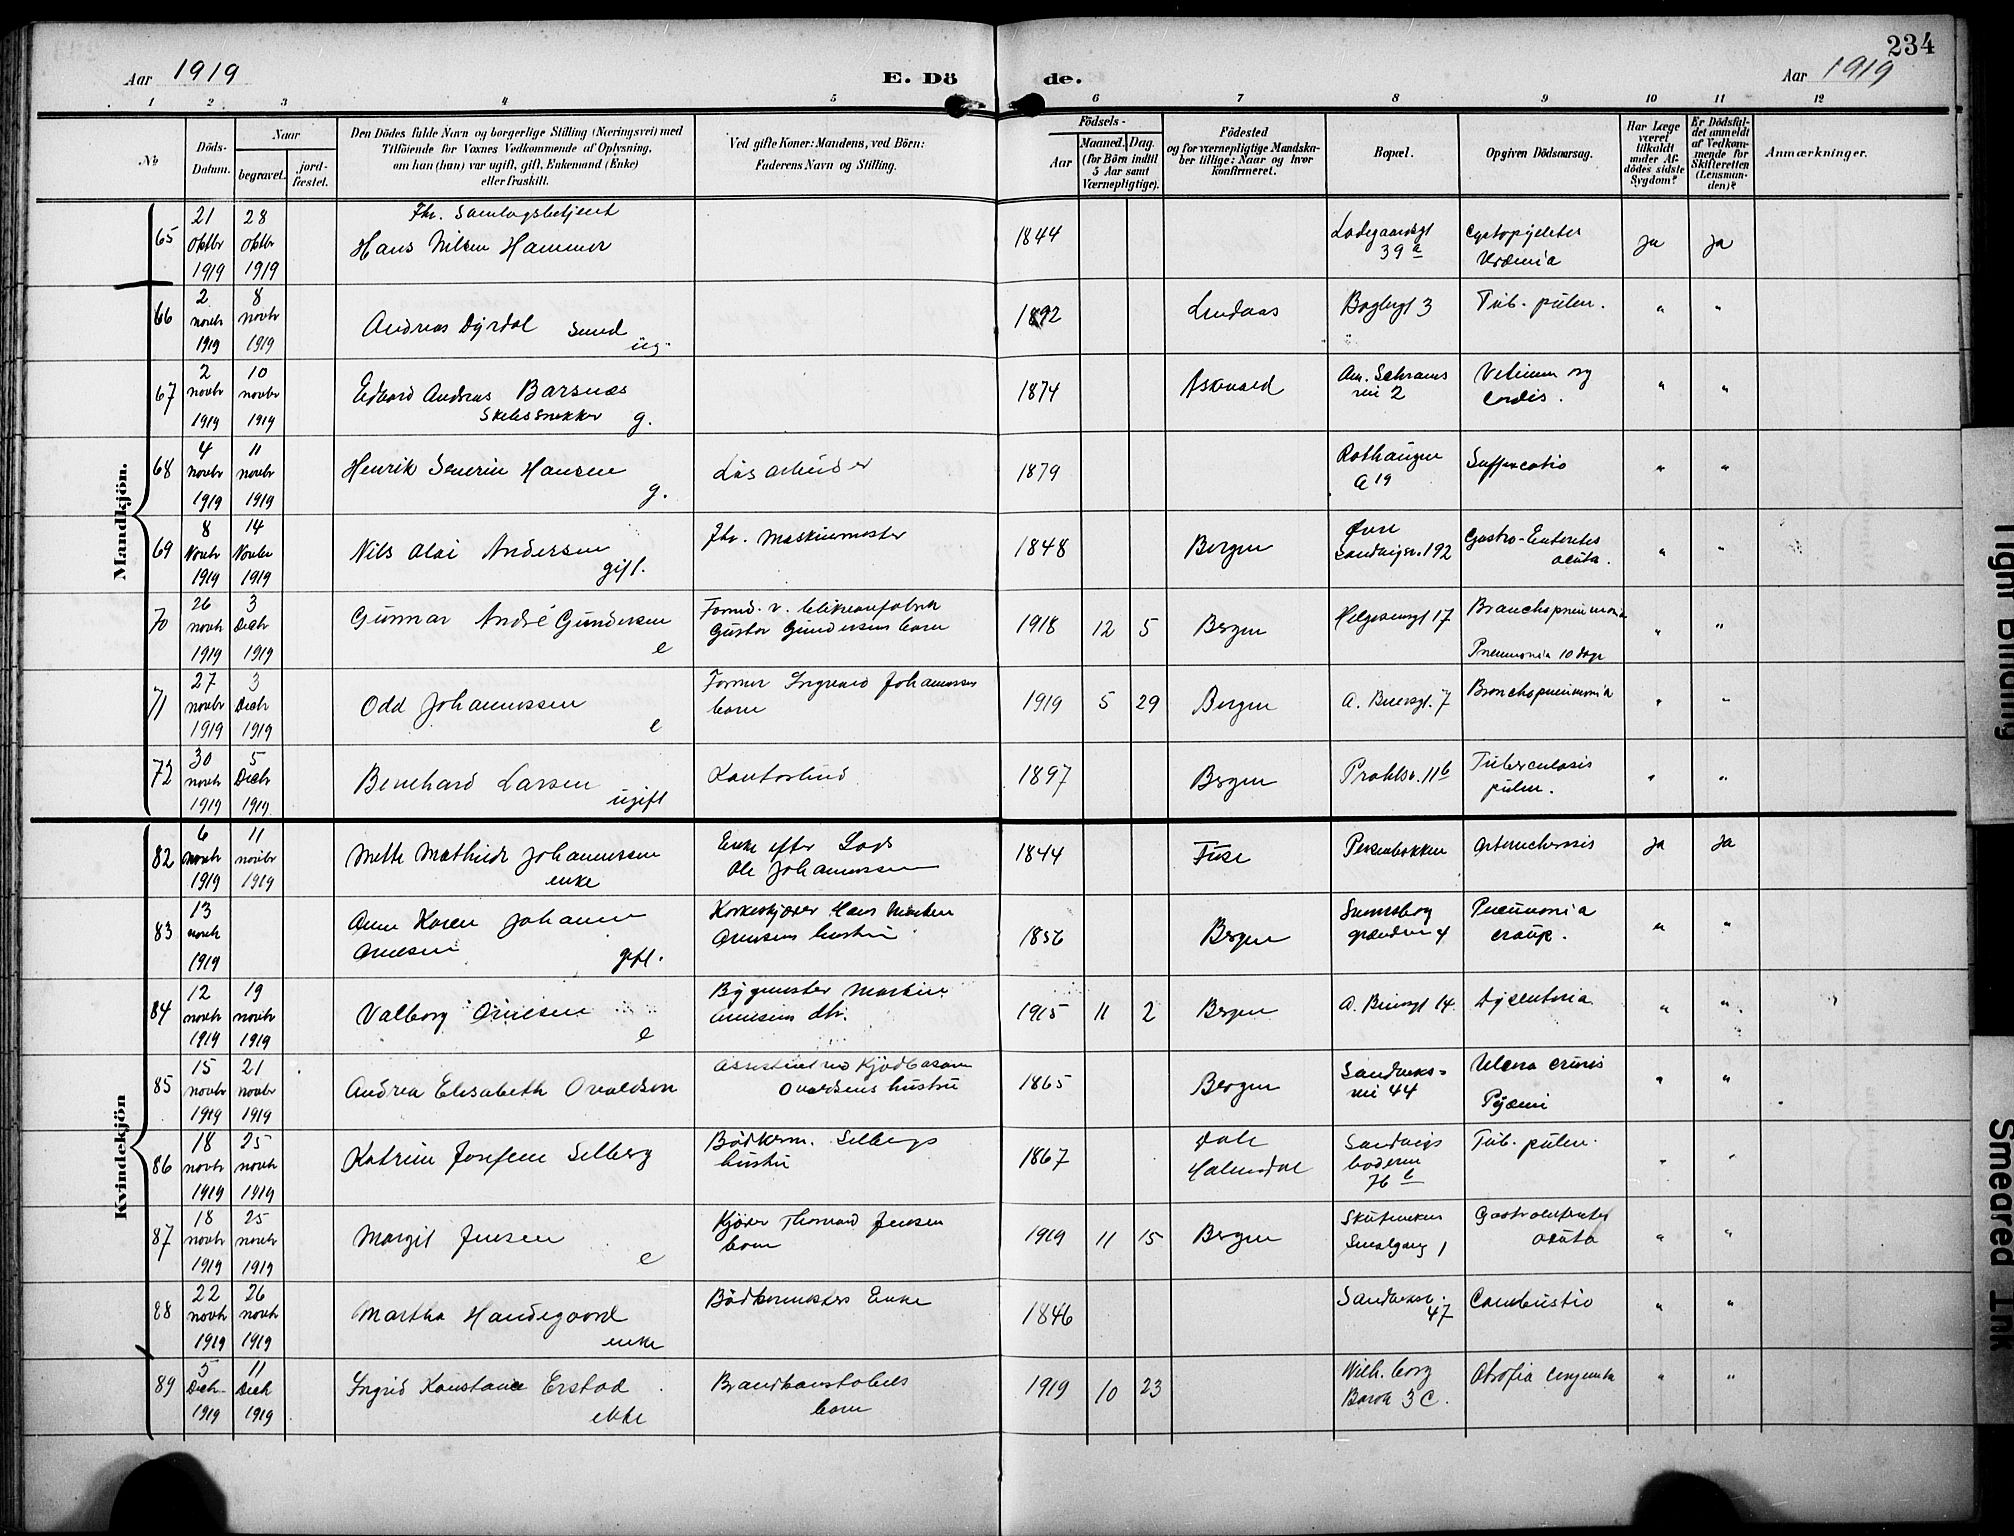 234
Aar 1919 E. Dö de. Aar 1919
1 2 3 4 5 6 7 8 9 10 11 12
No
Döds-Datum.
Naar
begravet.
jord-fæstet.
Den Dödes fulde Navn og borgerlige Stilling (Næringsvei) med
Tilföiende for Voxnes Vedkommende af Oplysning,
om han (hun) var ugift, gift, Enkemand (Enke)
eller fraskilt.
Ved gifte Koner: Mandens, ved Börn:
Faderens Navn og Stilling.
Födsels-
Aar
Maaned.
Dag.
(for Börn indtil
5 Aar samt
Værnepligtige).
Födested
og for værnepligtige Mandska-
ber tillige: Naar og hvor
konfirmeret.
Bopæl.
Opgiven Dödsaarsag.
Har Læge
været
tilkaldt
under Af-
dödes sidste
Sygdom?
Er Dödsfal-
det anmeldt
af Vedkom-
mende for
Skifteretten
(Lensman-
den)?
Anmærkninger.
Mandkjön.
65 21 Oktbr 1919 28 Oktbr 1919 Fhv. Samlagsbetjent Hans Nilsen Hammer 1844 Ladegaardsgt 39 a Cystopyelites Uræmia Ja Ja
66 2 novbr 1919 8 novbr 1919 Andreas Dyrdal Sund ug. 1892 Lindaas Baglergt 3 Tub. pulm. " "
67 2 novbr 1919 10 novbr 1919 Edvard Andreas Barsnæs Skibssnekker g. 1874 Askvold Am. Schrams vei 2 Vitium org cordis. " "
68 4 novbr 1919 11 novbr 1919 Henrik Severin Hansen g. Løsarbeider 1879 Rothaugen a 19 Suffocatio " "
69 8 Novbr 1919 14 Novbr 1919 Nils Olai Andersen gift. Fhv. Maskinmester 1848 Bergen Øvre Sandvigsv. 192 Gastro-Enterites acuta. " "
70 26 novbr 1919 3 Decbr 1919 Gunnar André Gundersen e Formd. v. blikvarefabrik Gustav Gundersens barn 1918 12 5 Bergen Helgesensgt 17 Bronchopneumonia Pneumonia 10 dage " "
71 27 novbr 1919 3 Decbr 1919 Odd Johannessen e Former Ingvald Johannessens barn 1919 5 29 Bergen A. Bruunsgt. 7 Bronchopneumonia " "
72 30 novbr 1919 5 Decbr 1919 Bernhard Larsen ugift Kontorbud 1897 Bergen Prahlsv. 11 b Tuberculosis pulm. " "
Kvindekjön
82 6 novbr 1919 11 novbr 1919 Mette Mathilde Johannessen enke Enke efter Lods Ole Johannessen 1844 Fuse Persenbakken Arteriosclerosis Ja Ja
83 13 novbr 1919 Anne Karen Johanne Arnesen gift. Korkeskjærer Hans Martin Arnesens hustru 1856 Bergen Sverresborg grænden 4 Pneumonia croup. " "
84 12 novbr 1919 19 novbr 1919 Valborg Arnesen e Bygmester Martin Arnesens dtr. 1915 11 2 Bergen A. Bruunsgt 14 Dysenteria " "
85 15 novbr 1919 21 novbr 1919 Andrea Elisabeth Ovaldsen Assistent ved Kjødbasaren Ovaldsens hustru 1865 Bergen Sandviksvei 44 Ulcera cruris Pyæmi " "
86 18 novbr 1919 25 novbr 1919 Katrine Josefine Selberg Bødkerm. Selbergs hustru 1867 Dale Holmedal Sandvigsboderne 76 b Tub. pulm. " "
87 18 novbr 1919 25 novbr 1919 Margit Jensen e Kjører Thorvald Jensen barn 1919 11 15 Bergen Skuteviken Smalgang 1 Gastroenterites acuta " "
88 22 novbr 1919 26 novbr 1919 Martha Handegaard enke Bødkermesters Enke 1846 Sandviksv. 47 Combustio " "
89 5 Decbr 1919 11 Decbr 1919 Ingrid Konstance Erstad ekte Brandkonstabels barn 1919 10 23 Wilh. borg Barak 3 C. Atrofia congenita " "
Tight Binding
Smeared Ink